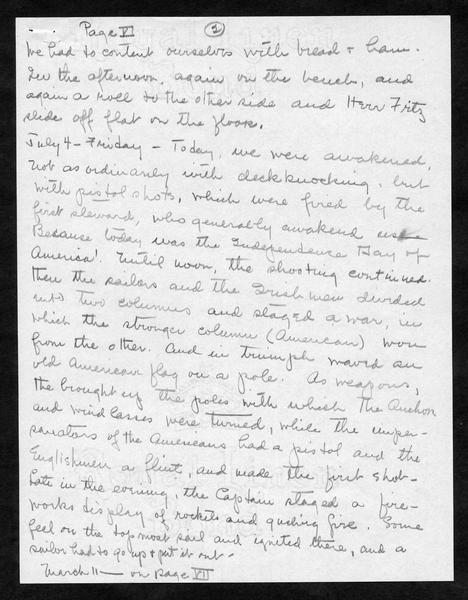 Page VI (2)
We had to content ourselves with bread + ham.
In the afternoon, again on the bench, and
again a roll to the other side and Herr Fritz
slide off flat on the floor.
July 4 - Friday - Today, we were awakened,
not as ordinarily with deckknocking, but
with pistol shots, which were fired by the
first steward, who generally awakend us
Because today was the Independence Day of
America! Until noon, the shooting continued.
then the sailors and the Irishmen divided
into two columns and staged a war, in
which the stronger column (American) won
from the other. And in triumph waved an
old American flag on a pole. As weapons,
the brought up the poles with which the Anchor
and windlasses were turned, while the imper-
sonators of the Americans had a pistol and the
Englishmen a flint, and made the first shot-
Late in the evening, the Captain staged a fire-
works display of rockets and fire. Some
fell on the top most sail and ignited there, and a
sailor had to go up + put it out -
March 11 - on page VII